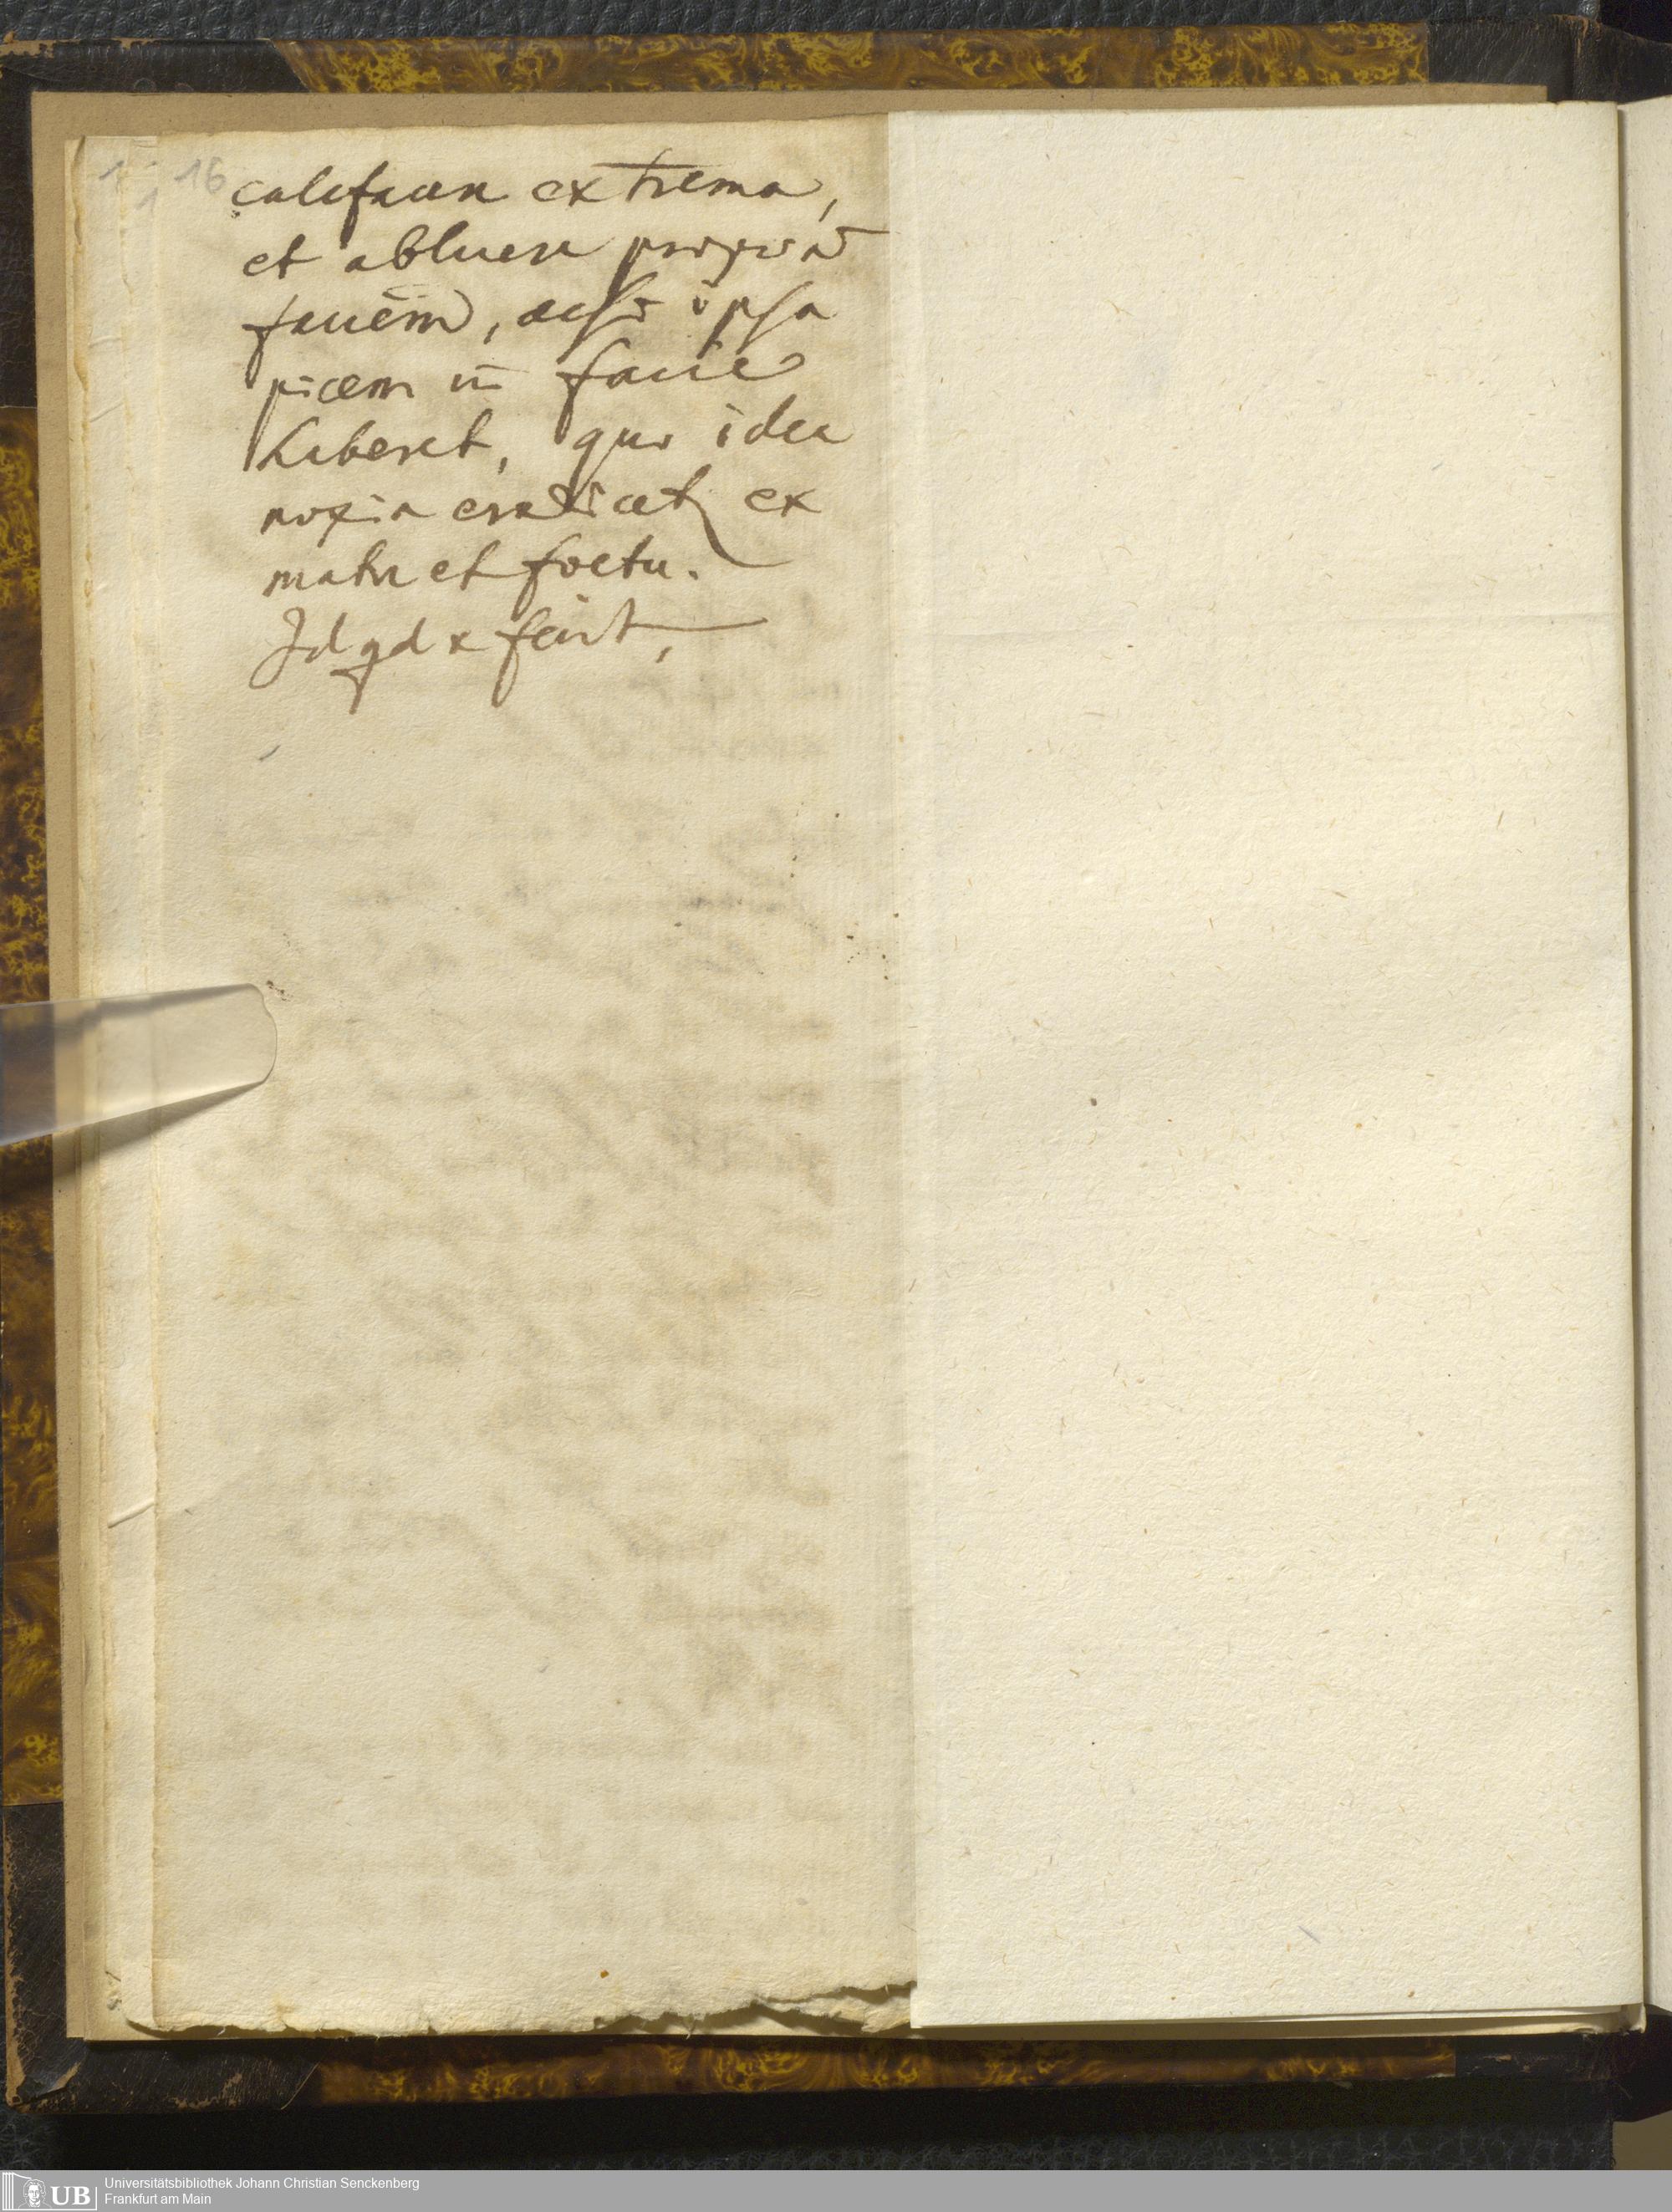 16
calefacere extrema,
et abluere propria
faciem, acsi ipsa
picem in facie
haberet, quo idea
noxia eradicet ex
matre et foetu.
Id qd x fecit,
UB Universitätsbibliothek Johann Christian Senckenberg
Frankfurt am Main